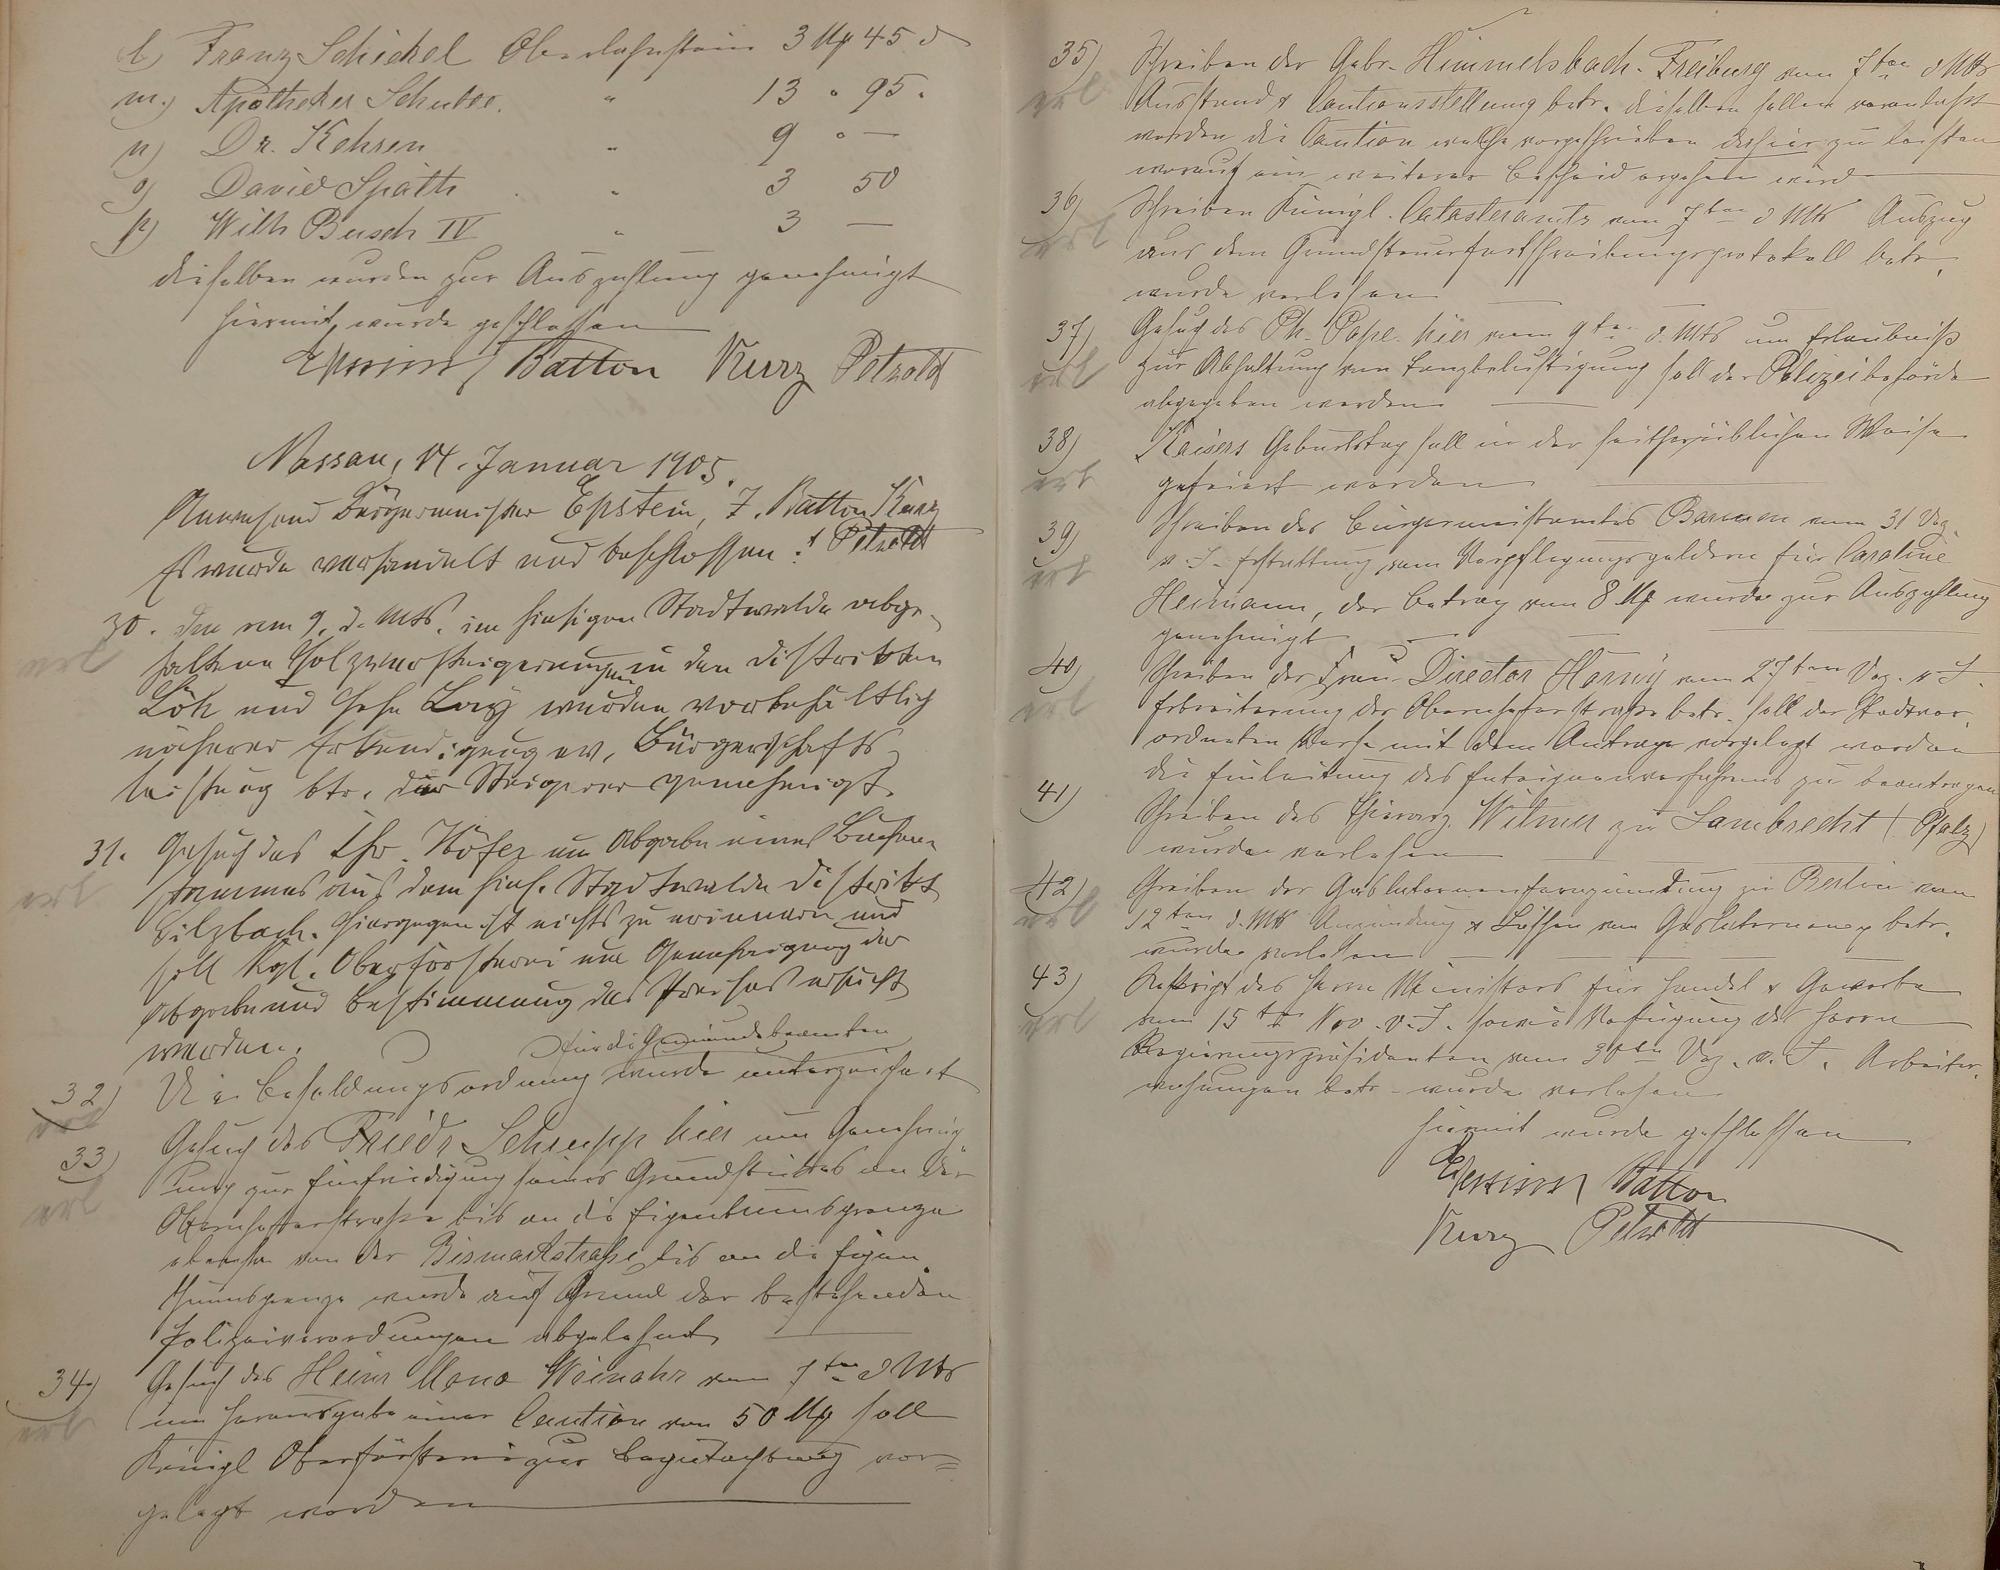 l) Franz Schickel Oberlahnstein 3 M 45 d
m.) Apotheker Schulze. " 13 " 95 "
n) Dr. Kehren " 9 " —
o) David Späth " 3 50
p) Wilh Busch IV " 3 —
dieselben wurden zur Auszahlung genehmigt
hiermit wurde geschlossen
Batton Kurz Petzold
Nassau, 14. Januar 1905.
Anwesend Bürgermeister Epstein, F. Batton Kurz
Es wurde verhandelt und beschlossen: & Petzold
30. Die vom 9. d. Mts. im hiesigen Stadtwalde abge-
erl
haltene Holzversteigerungen in den Distrikten
Löh und Hohe Lay wurden vorbehaltlich
näherer Erkundigung ev. Bürgschafts-
leistung btr. der Steigerer genehmigt.
31. Gesuch des Chr. Höfer um Abgabe eines Buchen-
erl
stammes aus dem hies. Stadtwalde Distrikt
Hiergegen ist nichts zu erinnern und
soll Kgl. Oberförsterei um Genehmigung der
Abgabe und Bestimmung des Preises ersucht
werden.
für die Gemeindebeamten
32) Die Besoldungsordnung wurde unterzeichnet
erl
33) Gesuch des Friedr Schrupp hier um Genehmig
erl
ung zur Einfriedigung seines Grundstückes an der
Obernhoferstraße bis an die Eigentumsgrenze
ebenso von der Bismarkstraße bis an die Eigen
thumsgrenze wurde auf Grund der bestehenden
Polizeiverordnungen abgelehnt
34.) Gesuch des Heinr Weinähr vom 7ten d Mts
erl
um Herausgabe einer Caution von 50 M soll
Königl Oberförsterei zur Begutachtung vor=
gelegt werden
35) Schreiben der Gebr. Himmelsbach. Freiburg vom 7ten d Mts
erl
Ausstand & Cautionsstellung betr. dieselben sollen veranlaßt
werden die Caution welche vorgeschrieben dahier zu leisten
worauf ein weiterer Bescheid ergehen wird
36) Schreiben Königl. Catasteramts vom 7ten d Mts Auszug
erl
aus dem Grundsteuerfortschreibungsprotokoll betr.
wurde verlesen
37) Gesuch des Ph. Pape. hier vom 9ten d. Mts um Erlaubniß
erl
zur Abhaltung von Tanzbelustigung soll der Polizeibehörde
abgegeben werden
38) Kaisers Geburtstag soll in der seither üblichen Weise
erl
gefeiert werden
39) Schreiben des Bürgermeisteramtes Barmen vom 31 Dez.
erl
v. J. Erstattung von Verpflegungsgeldern für Caroline
Heimann, der Betrag von 8 M wurde zur Auszahlung
genehmigt
40) Schreiben der Frau Director vom 27ten Dez. v J.
erl
Erbreiterung der Obernhoferstraße betr. soll der Stadtver-
ordneten mit dem Antrage vorgelegt werden
die Einleitung des Enteignenverfahrens zu beantragen
41) Schreiben des Thierarz. Witmer zu Lambrecht (Pfalz)
wurde verlesen
42) Schreiben der Gaslaternenfernzündung zu Berlin vom
erl
12ten d. Mts Anzündung & Löschen von Gaslaternen betr.
wurde verlesen
43) Reskript des Herrn Ministers für Handel & Gewerbe
erl
vom 15ten Nov. v. J. sowie Verfügung des Herrn
Regierungspräsidenten vom Dez. v. J. Arbeiter-
wohnungen betr. wurde verlesen
hiermit wurde geschlossen
Batton
Kurz Petzold